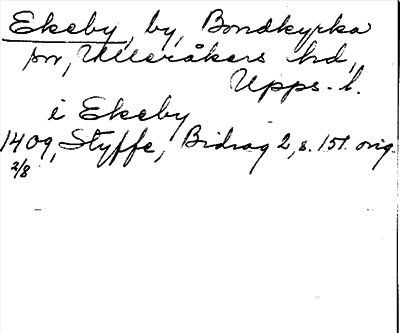 Ekeby, by, Bondkyrka
sn, Ulleråkers hd,
Upps. l.
i Ekeby
1409, Styffe, Bidrag 2, s. 151. orig.
2/8